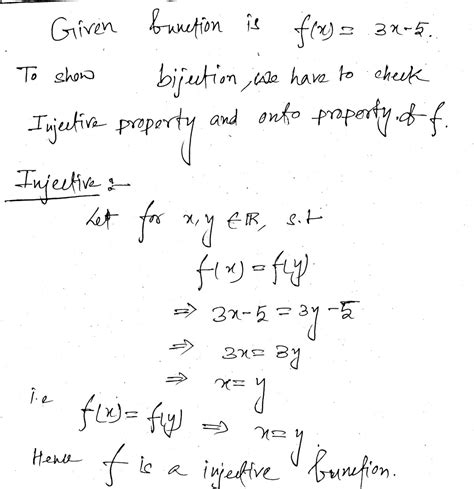 Given function is f(x) = 3x-5.
To show bijection, we have to check
Injective property and onto property of f.
Injective :-
Let for x, y ∈ ℝ, s.t
f(x) = f(y)
⇒ 3x-5 = 3y-5
⇒ 3x = 3y
⇒ x = y
i.e f(x) = f(y) ⇒ x = y
Hence f is a injective function.